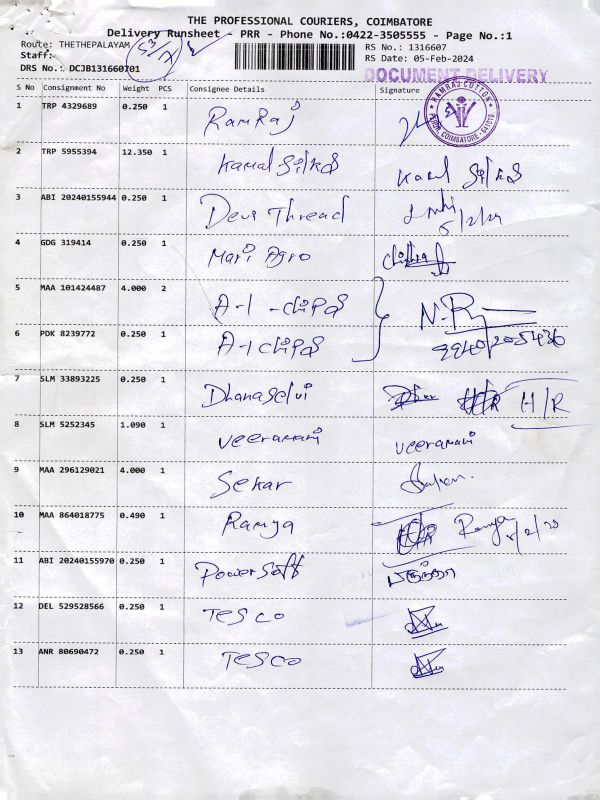 THE PROFESSIONAL COURIERS, COIMBATORE
Delivery Runsheet - PRR - Phone No.:0422-3505555 - Page No.:1
Route: THETHEPALAYAM
RS No.: 1316607
Staff:
RS Date: 05-Feb-2024
DRS No.: DCJB131660701
DOCUMENT DELIVERY
S No Consignment No Weight PCS Consignee Details Signature
RAMRAJ COTTON
1 TRP 4329689 0.250 1 RamRaj
2 TRP 5955394 12.350 1 Kamal Silks Kamal Silks
3 ABI 20240155944 0.250 1 Devi Thread 5/2/24
4 GDG 319414 0.250 1 Mari Agro Chithra
5 MAA 101424487 4.000 2 A-1 - Chips
6 PDK 8239772 0.250 1 A-1 Chips
7 SLM 33893225 0.250 1 Dhanaselvi H/R
8 SLM 5252345 1.090 1 Veeramani Veeramani
9 MAA 296129021 4.000 1 Sekar
10 MAA 864018775 0.490 1 Ramya Ramya
11 ABI 20240155970 0.250 1 Powersoft
12 DEL 529528566 0.250 1 Tesco
13 ANR 80690472 0.250 1 Tesco